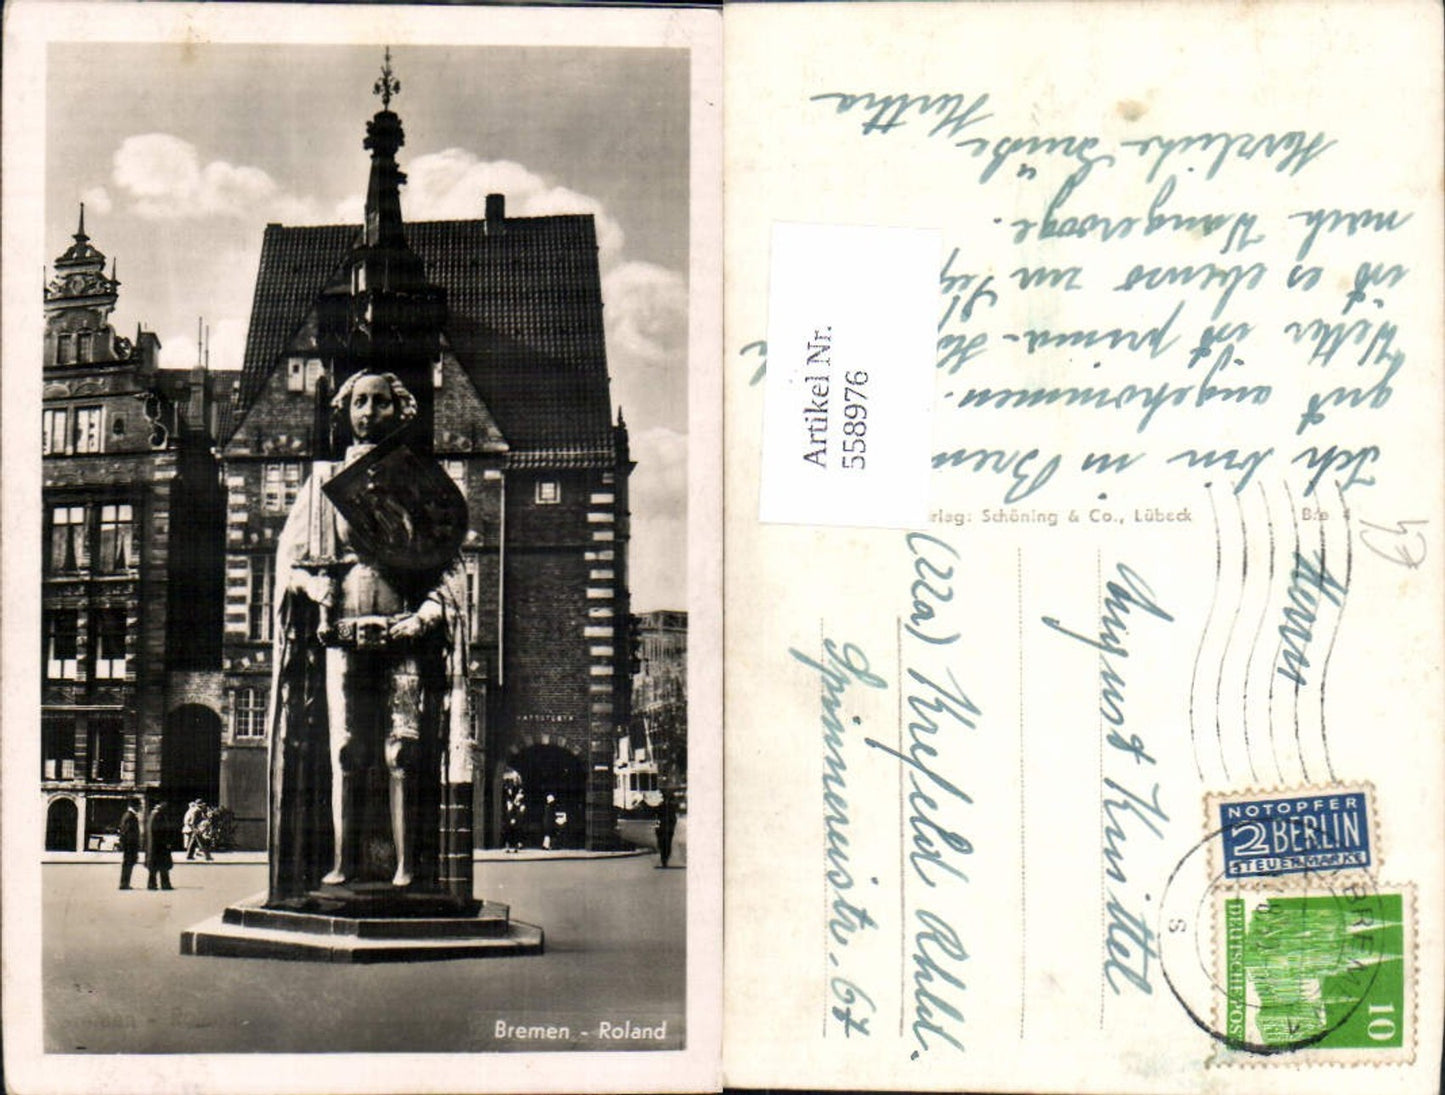 RATSSTUBEN
Bremen - Roland
Artikel Nr.
558976
Ich bin in Brem
gut angekommen.
Wetter ist prima.
ist es ebenso
nach Wangerooge.
Herzliche Grüße
Martha
rlag: Schöning & Co., Lübeck
Bre 4
Herrn
August Knittel
(22a) Krefeld Rhld.
Spinnereistr. 67
NOTOPFER
2 BERLIN
STEUERMARKE
DEUTSCHE POST
10
BREMEN